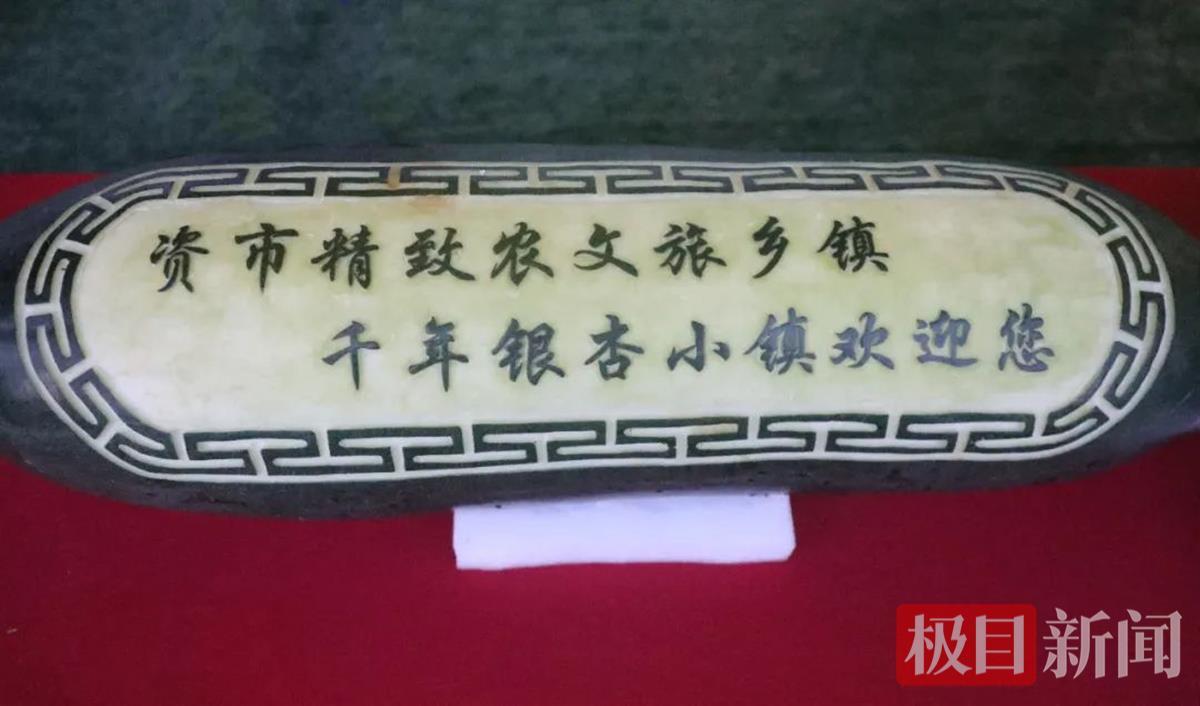 资市精致农文旅乡镇
千年银杏小镇欢迎您
极目新闻